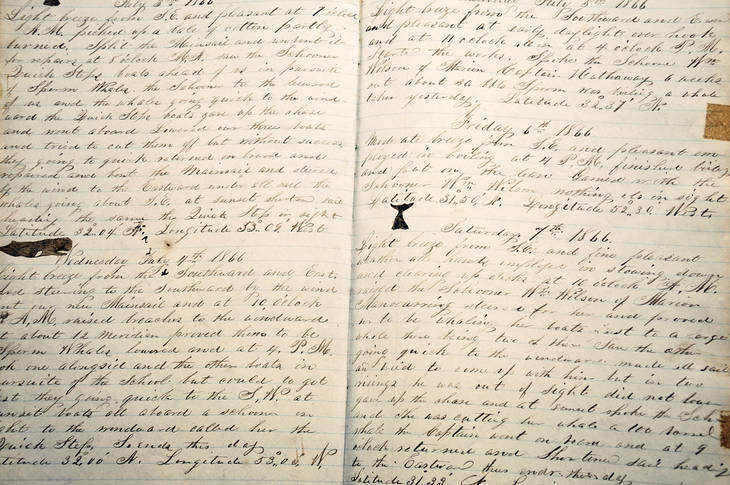 July 3rd 1866
Light breeze from S.E. and pleasant at
A.M. picked up a bale of cotton partly
burned. Split the Mainsail and unbent it
for repairs at 8 oclock A.M. saw the Schooner
Quick Step boats ahead of us in pursuite
Sperm Whales the Schooner to the leeward
of us and the whales going quick to the wind
ward the Quick Steps boats gave up the chase
and went aboard Lowered our three boats
and tried to cut them off but without success
they going to quick returned on board and
repaired and bent the Mainsail and steered
by the wind to the Eastward under all sail the
whales going about S.E. at sunset shorten sail
heading the same the Quick Step in sight
Latitude 32.04 N. Longitude 53.02 West
Wednesday July 4th 1866
Light breeze from the Southward and East
steering to the Southward by the wind
our new Mainsail and at 10 oclock
A.M. raised breaches to the windward
at about 12 Meridian proved them to be
Sperm Whales lowered and at 4. P.M.
one alongside and the other boats in
pursuite of the School but could to get
they going quick to the S.W. at
sunset boats all aboard a schooner in
to the windward called her the
Quick Step So ends this day
Latitude 32.00 N. Longitude 53.00 W,
July 5th 1866
Light breeze from the Southward and
and pleasant at early daylight
and at 11 oclock at 4 oclock P.M.
the works. Spoke the Schooner Wm
Wilson of Marion Captain Hathaway 6 weeks
out about 50 bbls Sperm was boiling a whale
yesterday. Latitude 32.37 N.
Friday 6th 1866
Moderate breeze from S.E. and pleasant em
ployed in boiling at 4 P.M. finished
and
Schooner Wm Wilson nothing in sight
Latitude 31.56 N. Longitude 52.36 West
Saturday 7th 1866.
Light breeze from S.E. and fine pleasant
weather all hands employed in stowing down
and clearing up decks at 10 oclock A.M.
raised the Schooner Wm Wilson of Marion
steered for her and proved
her to be whaling her boats fast to a large
whale there being two of them Saw the other
going quick to the windward made all sail
and tried to come up with him but in two
risings he was out of sight did not lower
gave up the chase and at sunset spoke the Sch
and she was cutting her whale a 100 barrel
whale the Captain went on board and at 9
oclock returned and Shortened sail heading
to the Eastward thus ends the day
Latitude 31.33 N